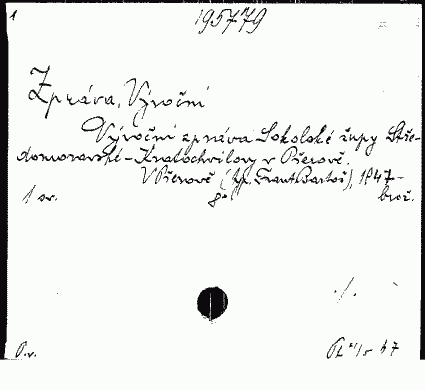 1
195779
Zpráva, Výroční
Výroční zpráva Sokolské župy Stře-
domoravské-Kratochvilovy v Přerově.
V Přerově (typ. Frant. Bartoš), 1947-
1 sv. 8° brož.
./.
P.v. 47